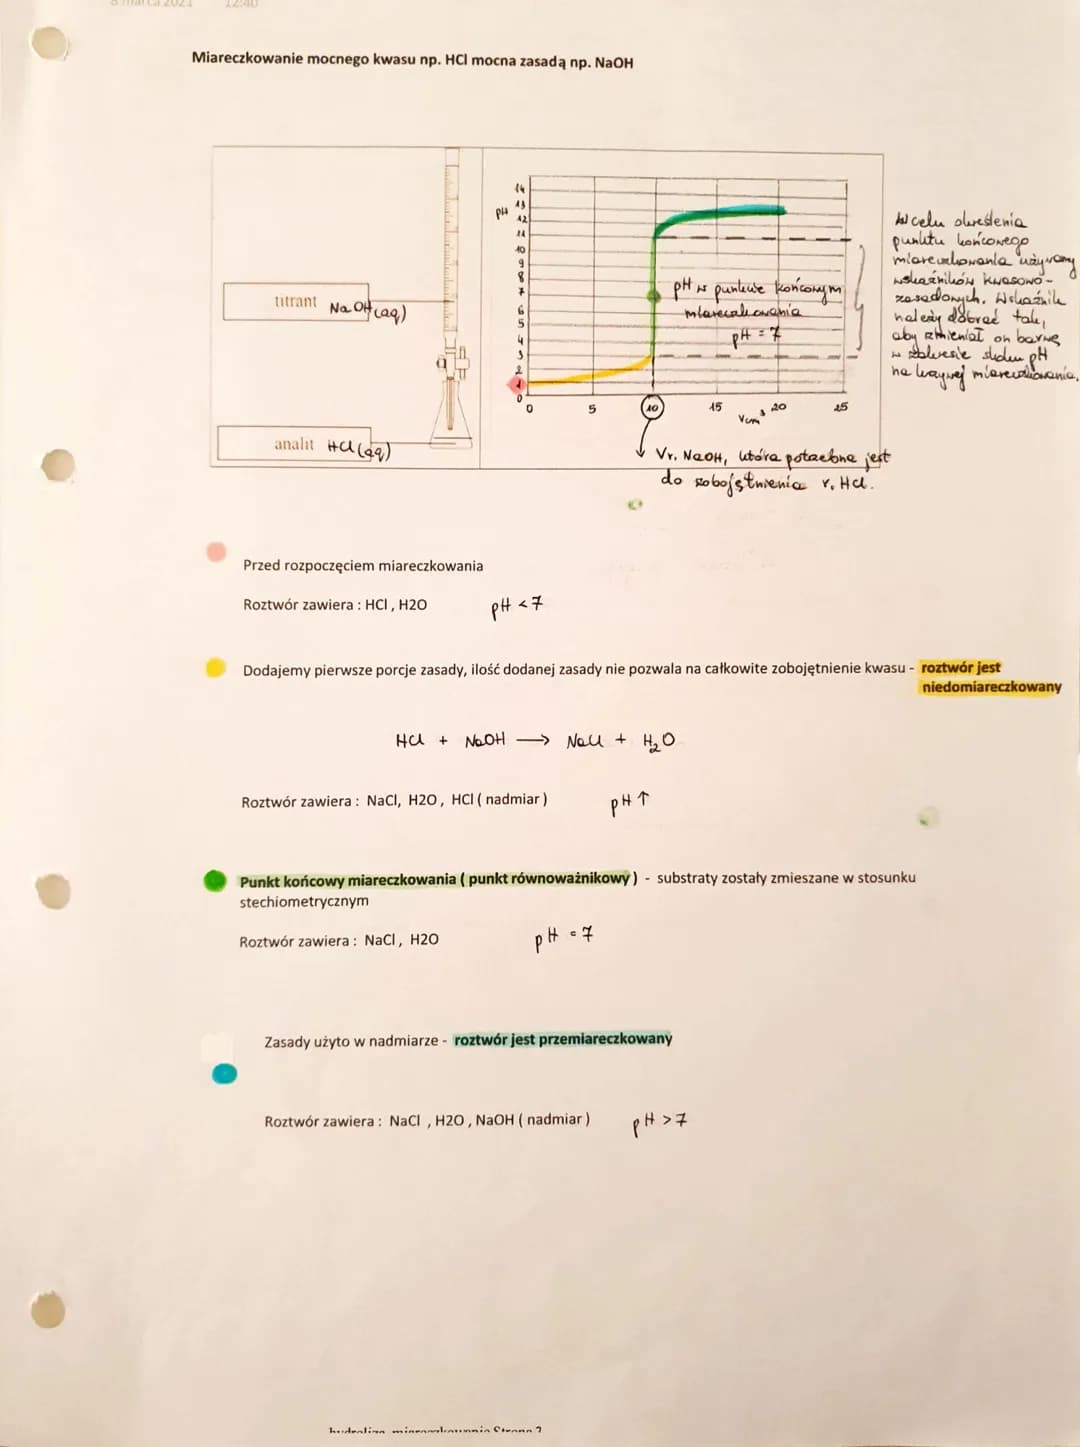 8 marca 2021 12:40
Miareczkowanie mocnego kwasu np. HCl mocna zasadą np. NaOH
titrant NaOH(aq)
analit HCl(aq)
pH
14
13
12
11
10
9
8
7
6
5
4
3
2
1
0
0 5 10 15 20 25
Vcm³
pH w punkcie końcowym
miareczkowania
pH = 7
W celu określenia
punktu końcowego
miareczkowania używamy
wskaźników kwasowo-
zasadowych. Wskaźnik
należy dobrać tak,
aby zmieniał on barwę
w zakresie skoku pH
na krzywej miareczkowania.
Vr. NaOH, która potrzebna jest
do zobojętnienia r. HCl.
Przed rozpoczęciem miareczkowania
Roztwór zawiera : HCl , H2O pH < 7
Dodajemy pierwsze porcje zasady, ilość dodanej zasady nie pozwala na całkowite zobojętnienie kwasu - roztwór jest
niedomiareczkowany
HCl + NaOH → NaCl + H₂O
Roztwór zawiera : NaCl, H2O , HCl ( nadmiar ) pH ↑
Punkt końcowy miareczkowania ( punkt równoważnikowy ) - substraty zostały zmieszane w stosunku
stechiometrycznym
Roztwór zawiera : NaCl , H2O pH = 7
Zasady użyto w nadmiarze - roztwór jest przemiareczkowany
Roztwór zawiera : NaCl , H2O , NaOH ( nadmiar ) pH > 7
hydroliza miareczkowanie Strona 2